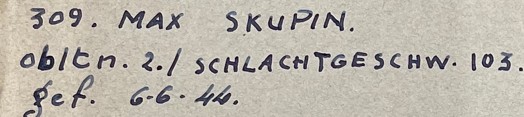 309. MAX SKUPIN.
obltn. 2./ SCHLACHTGESCHW. 103.
gef. 6-6-44.